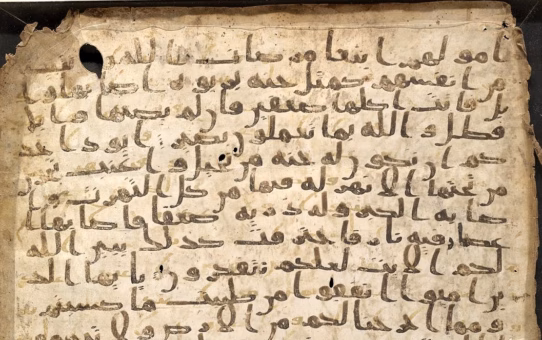 امولهم ابتغا مرضات الله
من انفسهم كمثل جنه بربوه اصابها وا
بل فاتت اكلها ضعفين فان لم يصبها وابل
فطل والله بما تعملون بصير ايود احد
كم ان تكون له جنه من نخيل واعنب تجرى
من تحتها الانهر له فيها من كل الثمرت وا
صابه الكبر وله ذريه ضعفا فاصابها
عصار فيه نار فاحترقت كذلك يبين الله
لكم الايت لعلكم تتفكرون يايها الذ
ين امنوا انفقوا من طيبت ما كسبتم
ومما اخرجنا لكم من الارض ولا